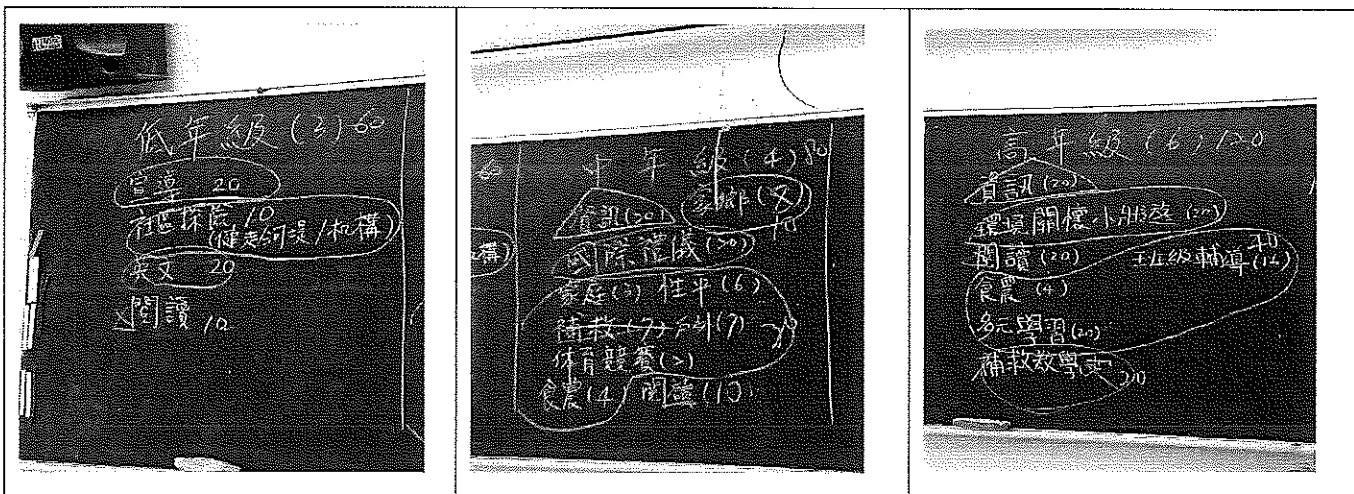 低年級(3)60
宣導 20
社區探索 10
(健走河堤/机構)
英文 20
閱讀 10
中年級(4)80
資訊(20) 家鄉
10
國際禮儀(20)
家庭(3) 性平(6)
補救(7) 戶外(7) 20
体育競賽
食農(4) 閱讀(10)
高年級(6)120
資訊(20)
環境關懷小旅遊(20)
閱讀(20) 班級輔導(12)
40
食農(4)
多元學習(20)
補救教學 20